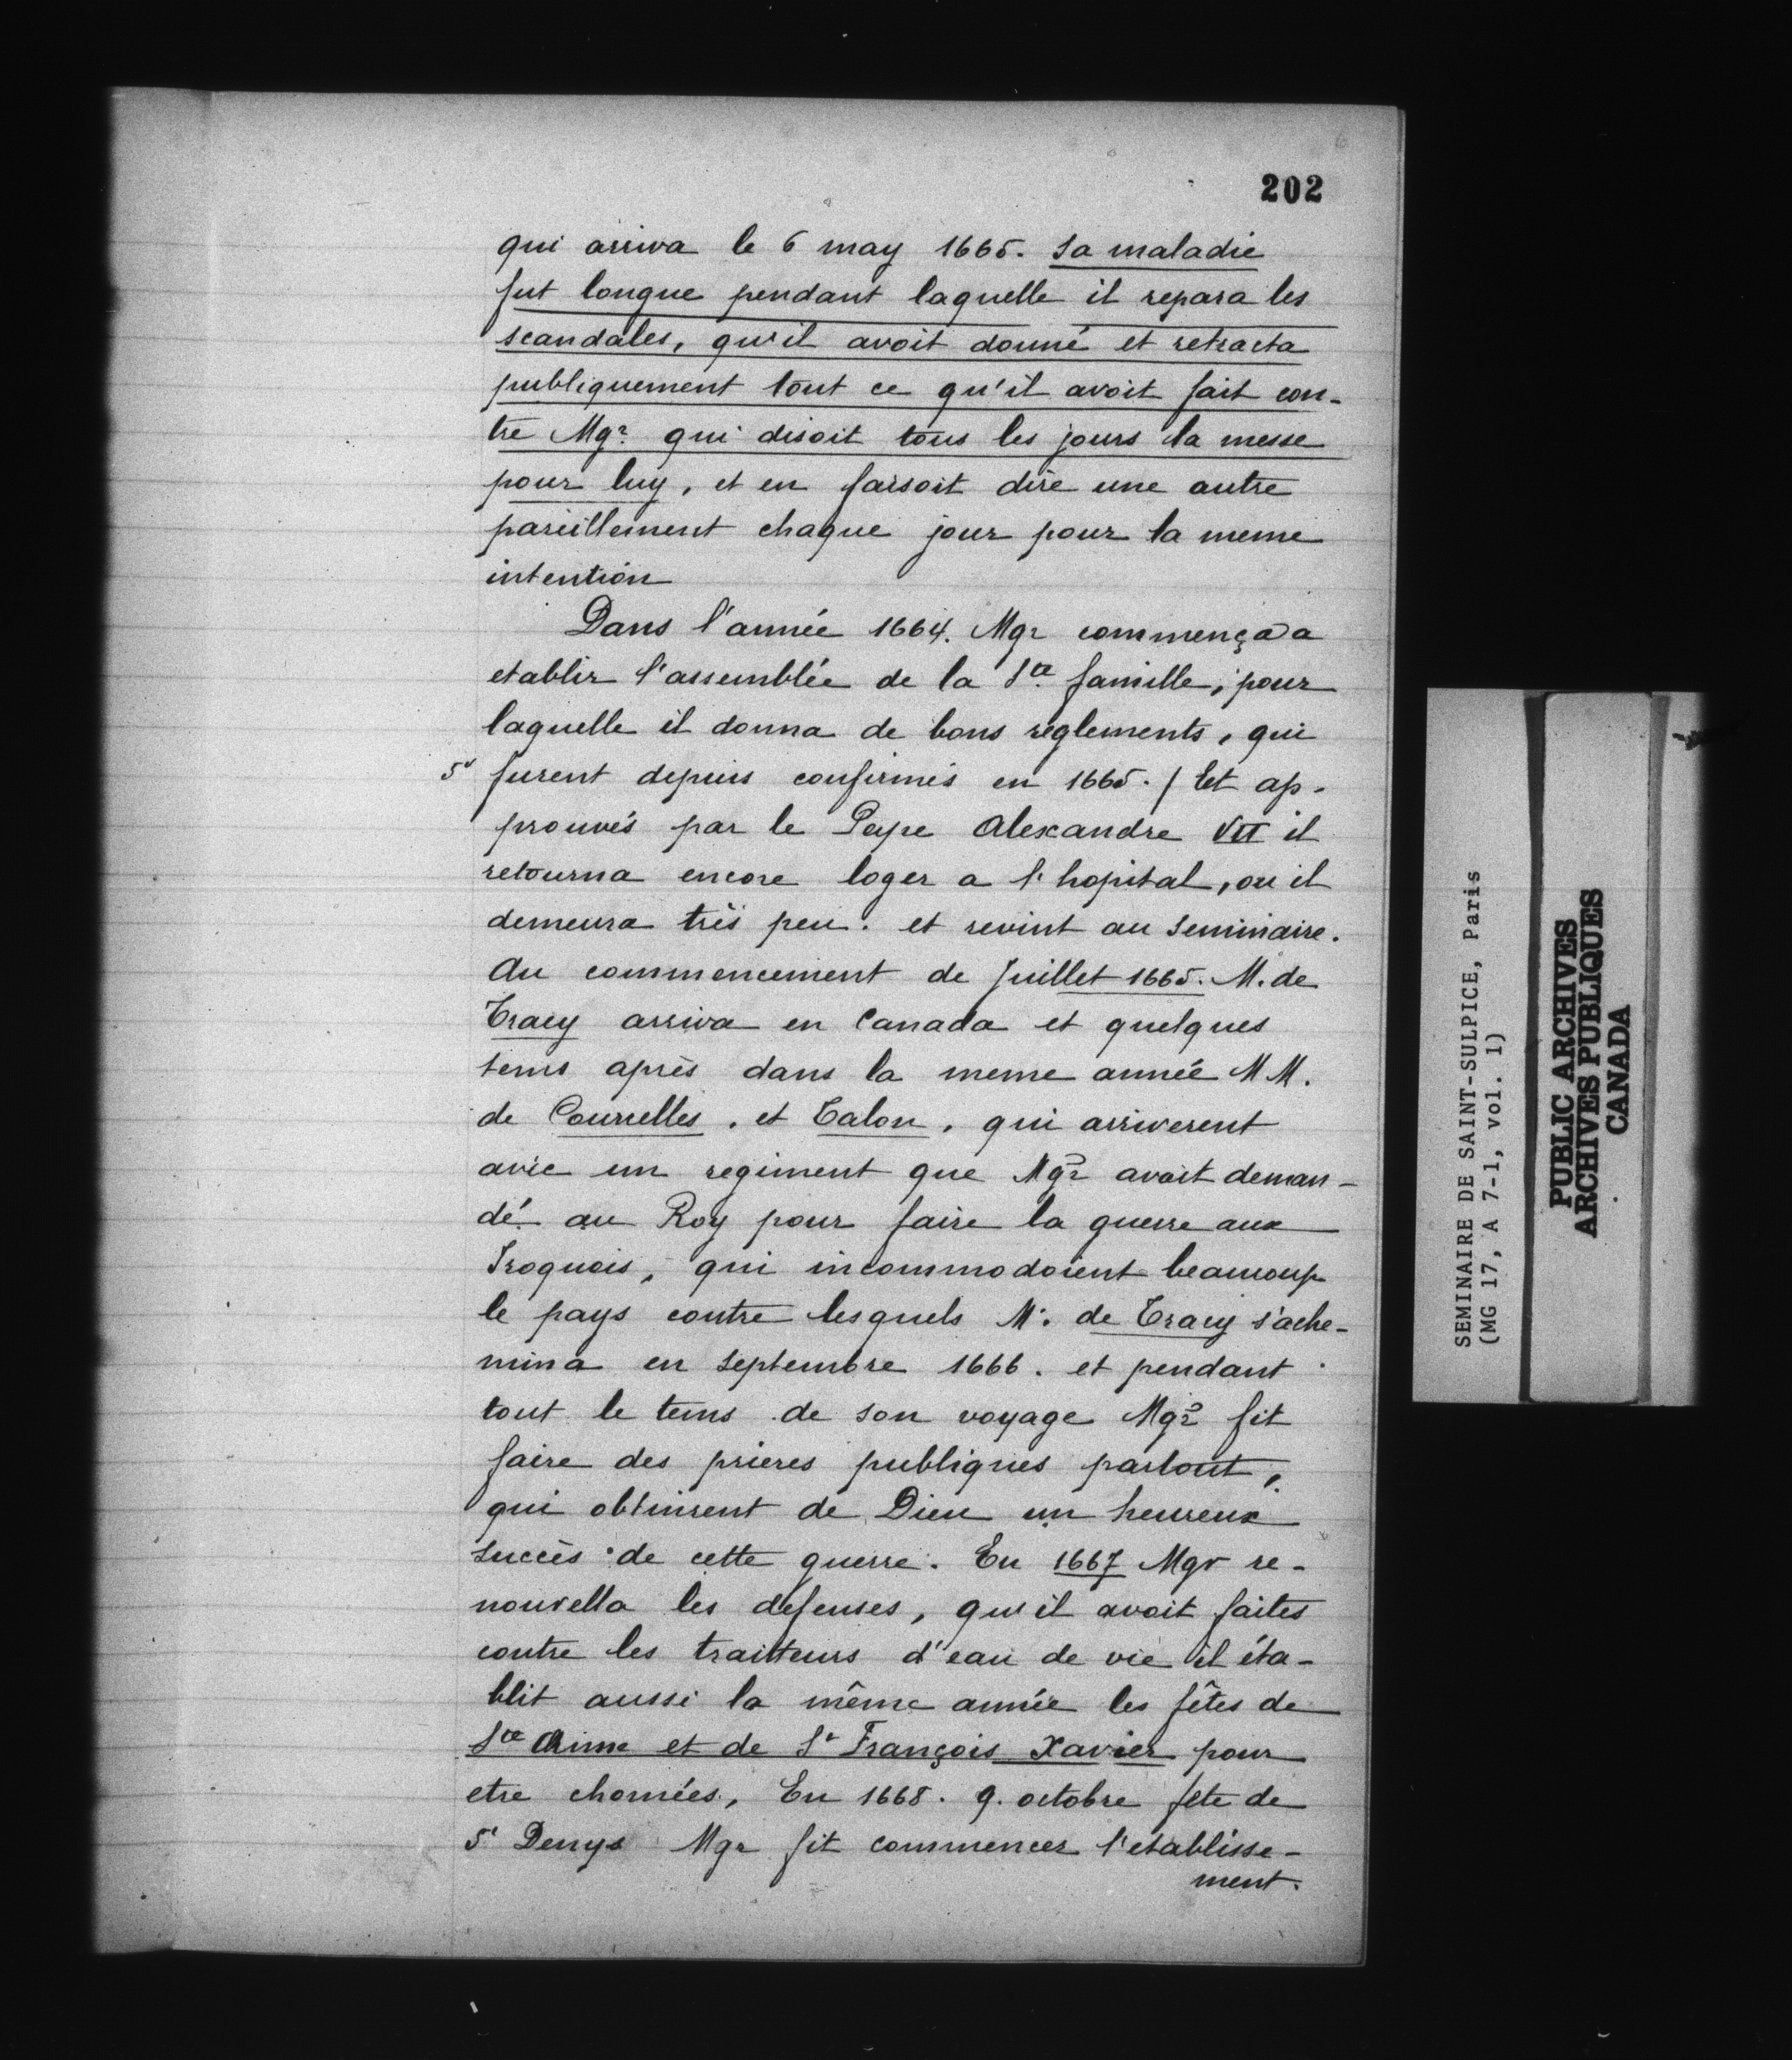 202
qui arriva le 6 may 1665. Sa maladie
fut longue pendant laquelle il repara les
scandales, qu'il avoit donné et retracta
publiquement tout ce qu'il avoit fait con-
tre Mgr. qui disoit tous les jours la messe
pour luy, et en faisoit dire une autre
pareillement chaque jour pour la meme
intention
Dans l'année 1664. Mgr commença a
etablir l'assemblée de la Ste famille, pour
laquelle il donna de bons reglements, qui
5v furent depuis confirmés en 1665. / Et ap-
prouvés par le Pape Alexandre VII il
retourna encore loger a l'hopital, ou il
demeura très peu. et revint au Seminaire.
Au commencement de Juillet 1665. M. de
Tracy arriva en Canada et quelques
tems après dans la meme année MM.
de Courcelles, et Talon, qui arriverent
avec un regiment que Mgr avoit deman-
dé au Roy pour faire la guerre aux
Iroquois, qui incommodoient beaucoup
le pays contre lesquels M. de Tracy s'ache-
mina en Septembre 1666. et pendant
tout le tems de son voyage Mgr fit
faire des prieres publiques partout,
qui obtinrent de Dieu un heureux
succès de cette guerre. En 1667 Mgr re-
nouvella les defenses, qu'il avoit faites
contre les traitteurs d'eau de vie il éta-
blit aussi la même année les fêtes de
Ste Anne et de St François Xavier pour
etre chomées, En 1668. 9. octobre fete de
St Denys Mgr fit commencer l'etablisse-
ment.
SEMINAIRE DE SAINT-SULPICE, Paris
(MG 17, A 7-1, vol. 1)
PUBLIC ARCHIVES
ARCHIVES PUBLIQUES
CANADA